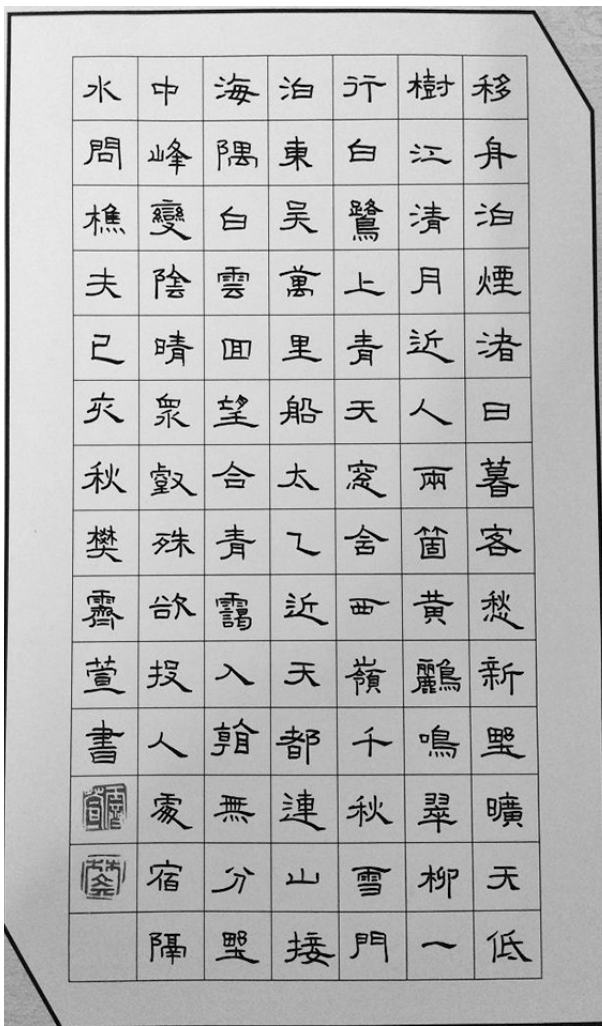 移舟泊煙渚日暮客愁新野曠天低
樹江清月近人兩箇黃鸝鳴翠柳一
行白鷺上青天窓含西嶺千秋雪門
泊東吳萬里船太乙近天都連山接
海隅白雲囬望合青靄入看無分野
中峰變陰晴衆壑殊欲投人處宿隔
水問樵夫己亥秋樊霽萱書